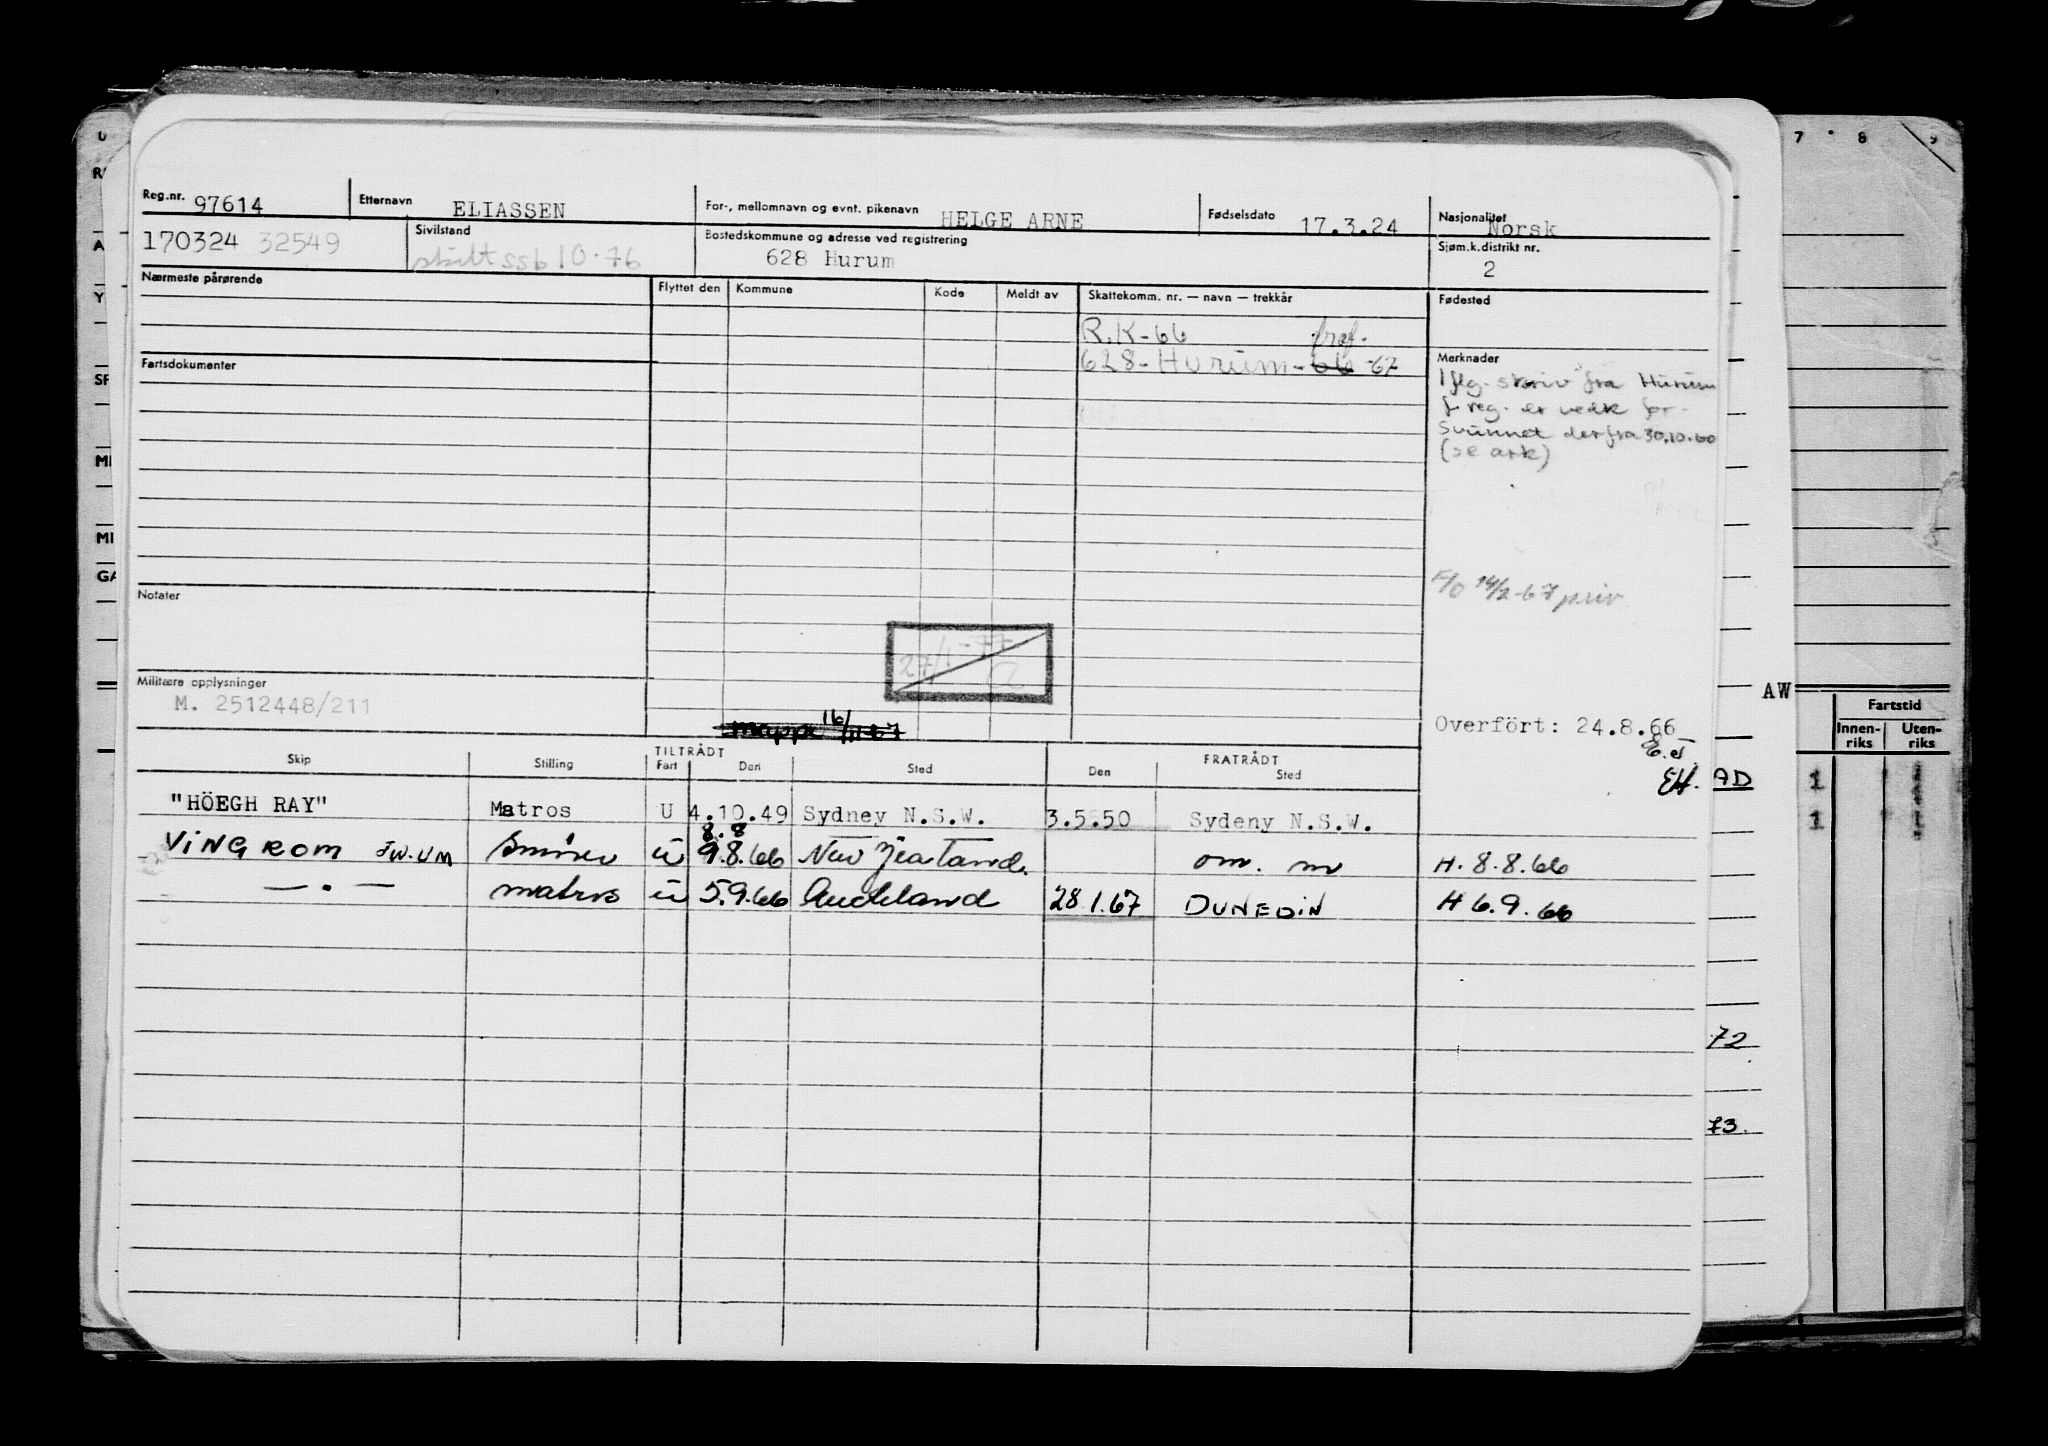 Reg.nr. 97614 Etternavn ELIASSEN For-, mellomnavn og evnt. pikenavn HELGE ARNE Fødselsdato 17.3.24 Nasjonalitet Norsk
170324 32549 Sivilstand skilt ssb 10.76 Bostedskommune og adresse ved registrering 628 Hurum Sjøm.k.distrikt nr. 2
Nærmeste pårørende Flyttet den Kommune Kode Meldt av Skattekomm. nr. — navn — trekkår Fødested
R.K-66
628-Hurum-66-67
Fartsdokumenter Merknader
Iflg. skriv fra Hurum
f reg. er vedk for-
svunnet derfra 30.10.60
(se ark)
F/O 14/2-67 priv
Notater
27/1-77
Militære opplysninger
M. 2512448/211
mappe 16/11-67
Overfört: 24.8.66
EH.
Skip Stilling TILTRÅDT Fart Den Sted FRATRÅDT Den Sted
"HÖEGH RAY" Matros U 4.10.49 Sydney N.S.W. 3.5.50 Sydeny N.S.W.
8.8
VINGROM JW.UM Smører u 9.8.66 New Zealand. om. m H. 8.8.66
— . — matros u 5.9.66 Auckland 28.1.67 DUNEDIN H 6.9.66
7 8 9
AW
Fartstid
Innen-riks Uten-riks
AD 1
1
72
73.